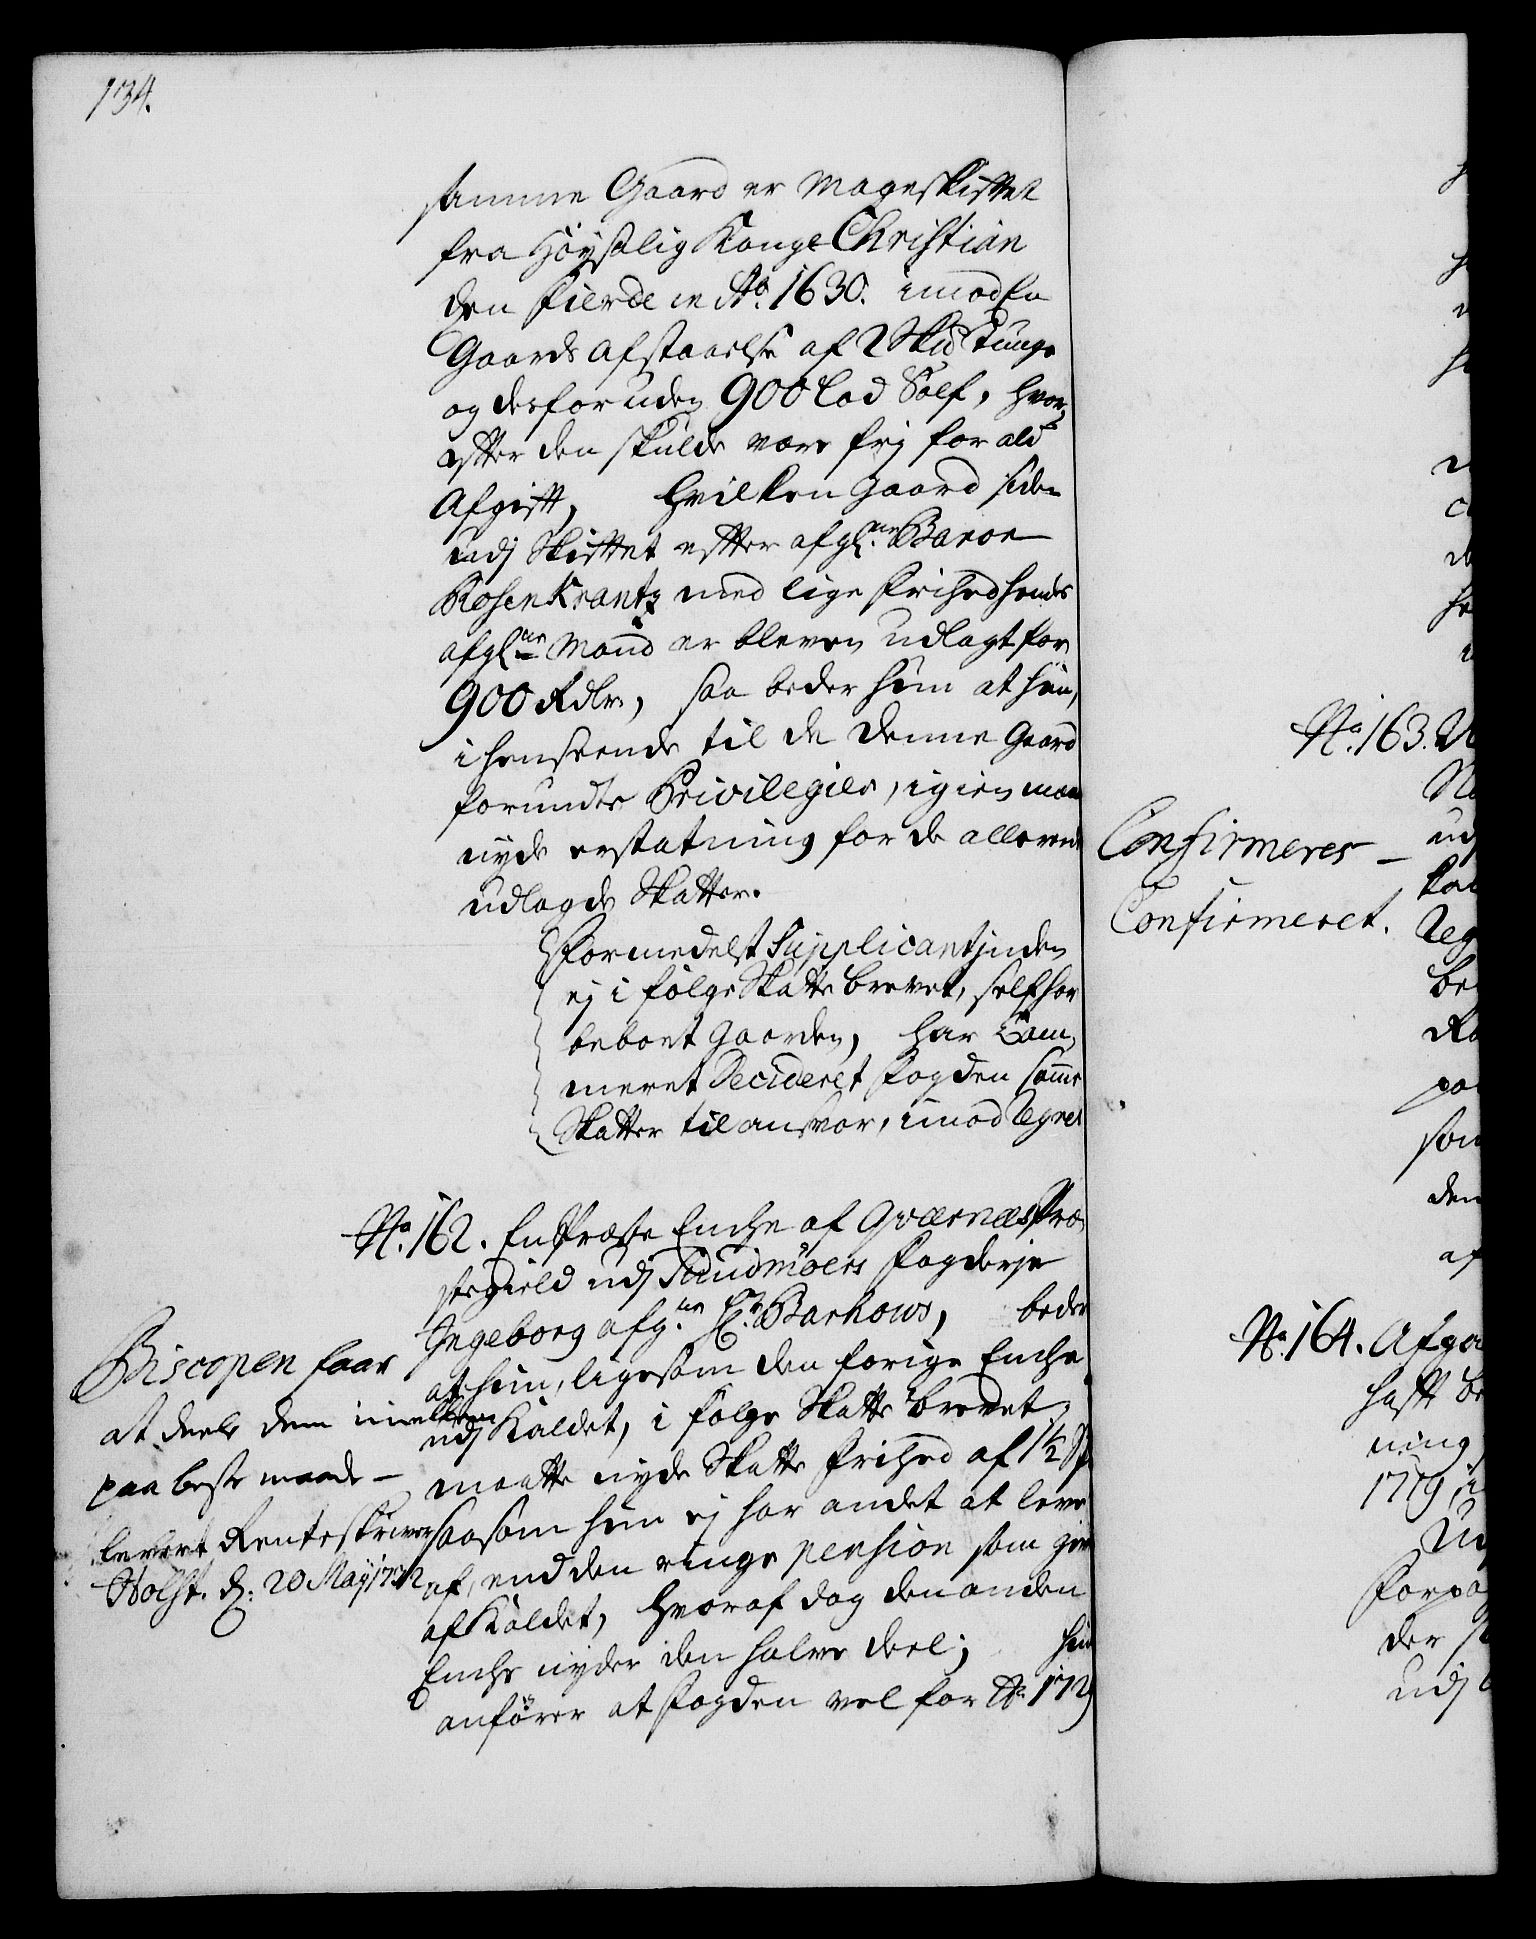 134.
samme Gaard er Mageskiftet
fra Höysalig Konge Christian
den Fierde in Ao. 1630. imod En
Gaards Afstaaelse af 2 Skid Tunge
og desforuden 900 Lod Sölf, hvor
effter den skulde være frj for ald
Afgifft, hvilken Gaard siden
udj Skifftet effter afgl. Baron
Rosenkrantz med lige Frihed hendes
afgl. Mand er bleven udlagt for
900 Rdlr., saa beder hun at hun,
i henseende til de denne Gaard
forundte Privilegier, igien maa
nyde erstatning for de allerede
udlagde Skatter.
Formedelst Supplicantjnden
ej i fölge Skattebrevet, self har
beboet Gaarden, har Cam,
meret Decideret Fogden samme
Skatter til ansvar, imod Regres
No. 162. En Præste Enche af Qværnæs Præ,
stegield udj Sundmöers Fogderje
Ingeborg afg. Hr. Barhows, beder
at hun, ligesom den forige Enche
udj Kaldet, i fölge Skatte brevet,
maatte nyde Skatte Frihed af 1½ Sp
saasom hun ej har andet at leve
af, end den ringe pension som gives
af Kaldet, hvoraf dog den anden
Enche nyder den halve deel; hun
anförer at Fogden vel for Ao. 1729
Biscopen faar
at deele dem imellem
paa beste maade -
leveret Renteskriver
Holst. d: 20 Maij 1732
No. 163.
Confirmeres -
Confirmeret.
No. 164. Afga
hafft be
ning
1719,
Forpa
der
udj